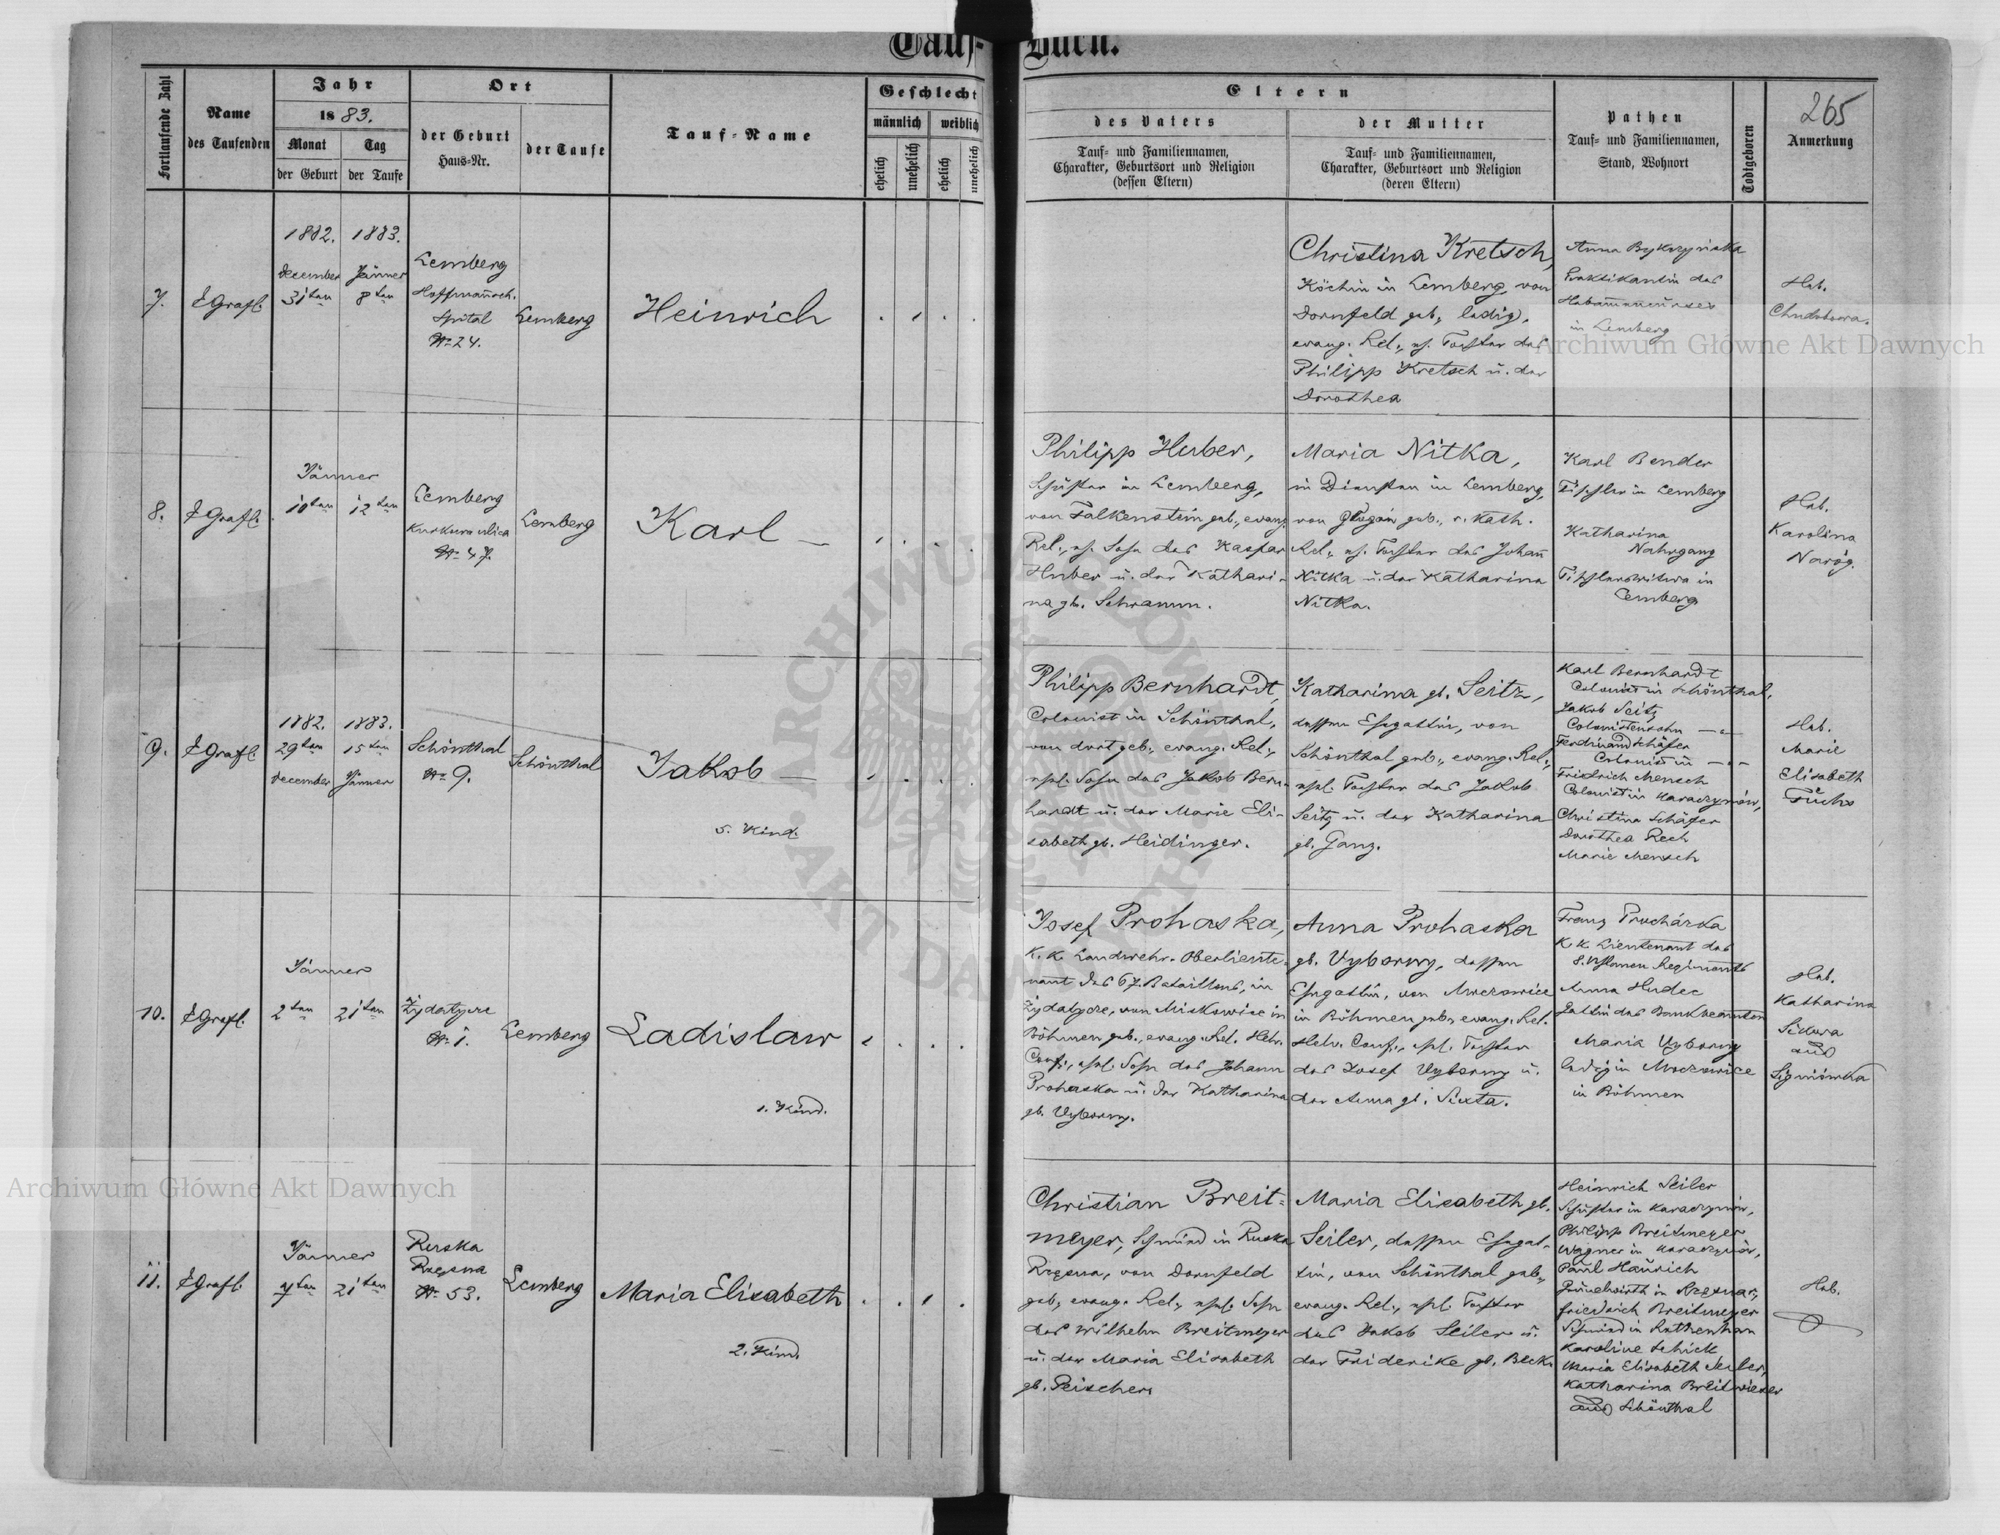 Tauf-Buch.
Fortlaufende Zahl
Name
des Taufenden
Jahr
1883.
Monat
der Geburt
Tag
der Taufe
Ort
der Geburt
Haus-Nr.
der Taufe
Tauf-Name
Geschlecht
männlich
weiblich
ehelich
unehelich
ehelich
unehelich
Eltern
des Vaters
Tauf- und Familiennamen,
Charakter, Geburtsort und Religion
(dessen Eltern)
der Mutter
Tauf- und Familiennamen,
Charakter, Geburtsort und Religion
(deren Eltern)
Pathen
Tauf- und Familiennamen,
Stand, Wohnort
Todtgeboren
265
Anmerkung
7.
EGrafl.
1882.
December
31ten
1883.
Jänner
8ten
Lemberg
Spital
No 24.
Lemberg
Heinrich
Christina Kretsch,
Köchin in Lemberg, von
Dornfeld geb., ledig,
evang. Rel., es. Tochter des
Philipp Kretsch u. der
Dorothea
Anna
Praktikantin des
in Lemberg
Heb.
8.
EGrafl.
Jänner
10ten
12ten
Lemberg
Kurkowa ulica
No 47.
Lemberg
Karl —
Philipp Huber,
Schuster in Lemberg,
von Falkenstein geb., evang.
Rel., es. Sohn des Kaspar
Huber u. der Kathari-
na gb. Schramm.
Maria Nitka,
in Diensten in Lemberg,
von geb., r. kath.
Rel., es. Tochter des Johann
Nitka u. der Katharina
Nitka.
Karl Bender
Tischler in Lemberg
Katharina
Nahrgang
Tischlerswitwe in
Lemberg
Heb.
Karolina
Naróg.
9.
EGrafl.
1882.
29ten
December
1883.
15ten
Jänner
Schönthal
No 9.
Schönthal
Jakob —
5. Kind.
Philipp Bernhardt,
Colonist in Schönthal,
von dort geb., evang. Rel.,
ehl. Sohn des Jakob Bern-
hardt u. der Marie Eli-
sabeth gb. Heidinger.
Katharina gb. Seitz,
dessen Ehegattin, von
Schönthal geb., evang. Rel.,
ehl. Tochter des Jakob
Seitz u. der Katharina
gb. Ganz.
Karl Bernhardt
Colonist in Schönthal,
Jakob Seitz
Colonistensohn —〃—
Ferdinand Schäfer
Colonist in —〃—
Friedrich Mensch
Colonist in Karaczynów,
Christina Schäfer
Dorothea Rech
Marie Mensch
Heb.
Marie
Elisabeth
Fuchs
10.
EGrafl.
Jänner
2ten
21ten
Żydatycze
No 1.
Lemberg
Ladislaw
1. Kind.
Josef Prohaska,
K. K. Landwehr-Oberlieute-
nant des 67. Bataillons, in
Żydatycze, von Miskowice in
Böhmen geb., evang. Rel. Helv.
Conf., ehl. Sohn des Johann
Prohaska u. der Katharina
gb. Vyborny.
Anna Prohaska
gb. Vyborny, dessen
Ehegattin, von
in Böhmen geb., evang. Rel.
Helv. Conf., ehl. Tochter
des Josef Vyborny u.
der Anna gb. Sixta.
Franz Procházka
K. K. Lieutenant des
8. Uhlanen Regiments
Anna Hudec
Gattin des Bankbeamten
Maria Vyborny
ledig in
in Böhmen
Heb.
Katharina
aus
11.
EGrafl.
Jänner
7ten
21ten
Ruska
Rzęsna
No 53.
Lemberg
Maria Elisabeth
2. Kind.
Christian Breit-
meyer, Schmied in Ruska
Rzęsna, von Dornfeld
geb., evang. Rel., ehl. Sohn
des Wilhelm Breitmeyer
u. der Maria Elisabeth
gb. Reischer.
Maria Elisabeth gb.
Seiler, dessen Ehegat-
tin, von Schönthal geb.,
evang. Rel., ehl. Tochter
des Jakob Seiler u.
der Friderike gb. Beck.
Heinrich Seiler
Schuster in Karaczynów,
Philipp Breitmeyer
Wagner in Karaczynów,
Paul Haurich
Friedrich Breitmeyer
Schmied in Rottenhan
Karoline Schick
Maria Elisabeth Seiler,
Katharina Breitwieser
aus Schönthal
Heb.
Archiwum Główne Akt Dawnych
Archiwum Główne Akt Dawnych